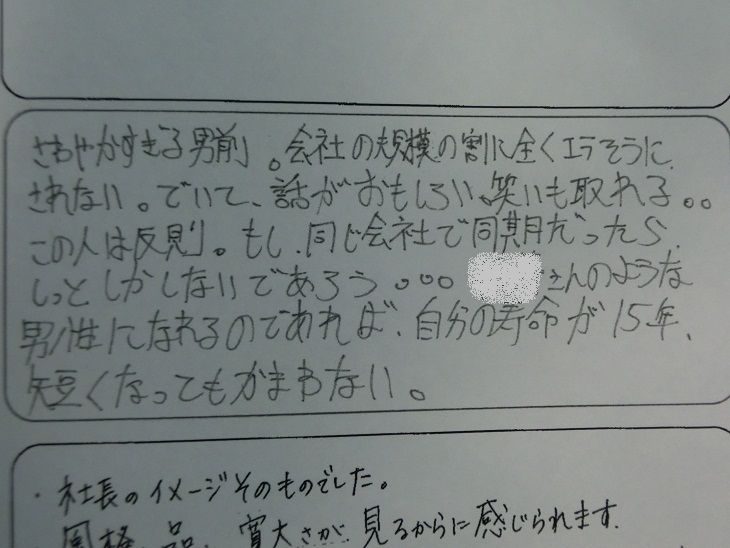 さわやかすぎる男前。会社の規模の割に全くエラそうに
されない。でいて、話がおもしろい。笑いも取れる。。
この人は反則。もし、同じ会社で同期だったら、
しっとしかしないであろう。。。さんのような
男性になれるのであれば、自分の寿命が15年、
短くなってもかまわない。
・社長のイメージそのものでした。
風格、品、寛大さが、見るからに感じられます。